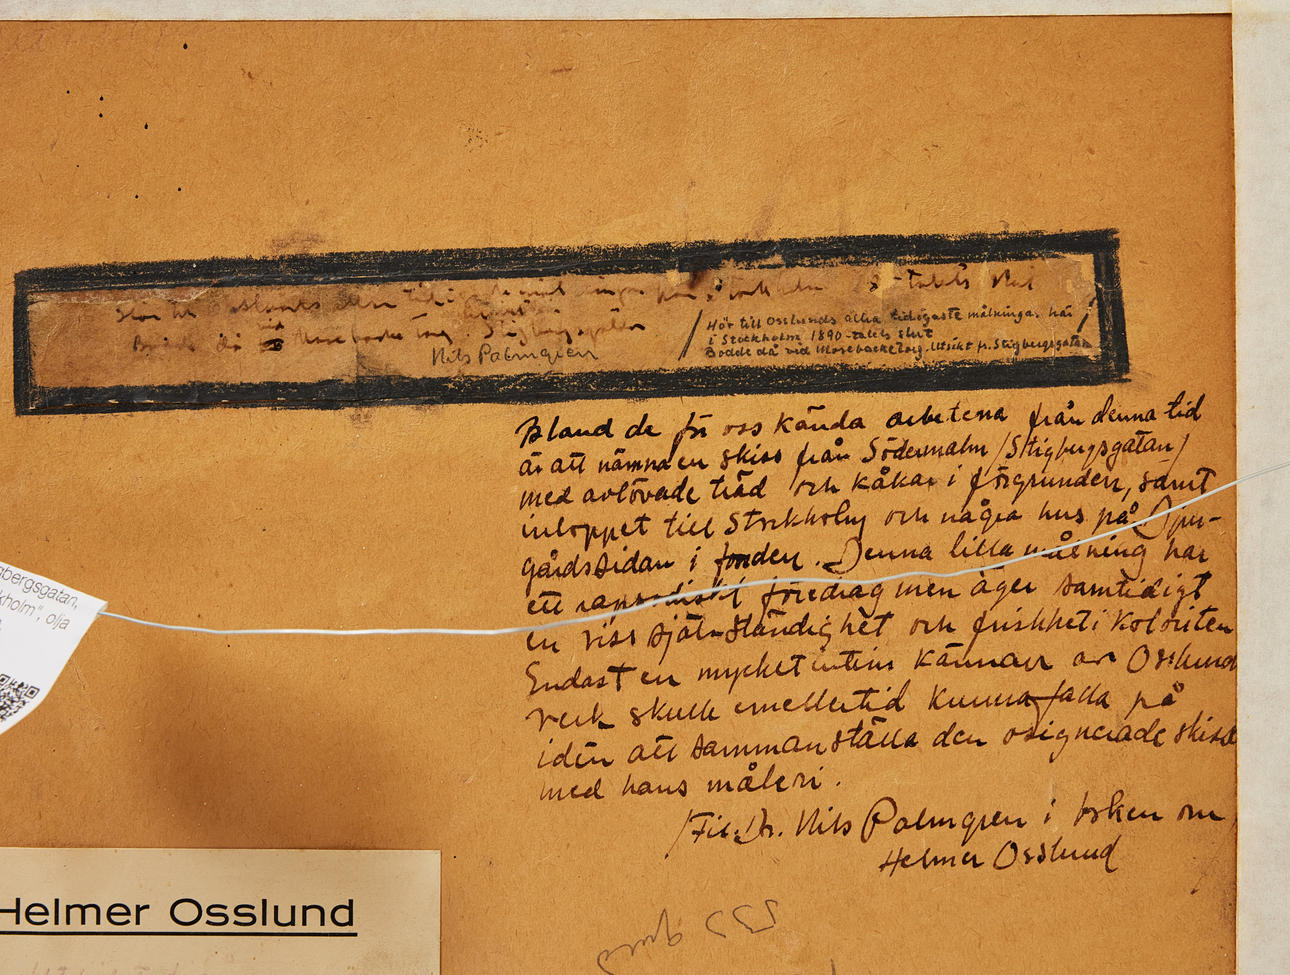 Nils Palmgren
/ Hör till Osslunds allra tidigaste målningar här /
i Stockholm 1890-talets slut
Bodde då vid Mosebacke torg. Utsikt fr. Stigbergsgatan
Bland de för oss kända arbetena från denna tid
är att nämna en skiss från Södermalm /Stigbergsgatan/
med avlövade träd och kåkar i förgrunden, samt
inloppet till Stockholm och några hus på Djur-
gårdssidan i fonden. Denna lilla målning har
ett rapsodiskt föredrag men äger samtidigt
en viss självständighet och friskhet i koloriten
Endast en mycket intim kännare av Osslunds
verk skulle emellertid kunna falla på
idén att sammanställa den osignerade skissen
med hans måleri.
/Fil. Dr. Nils Palmgren i boken om
Helmer Osslund
gbergsgatan,
kholm", olja
Helmer Osslund